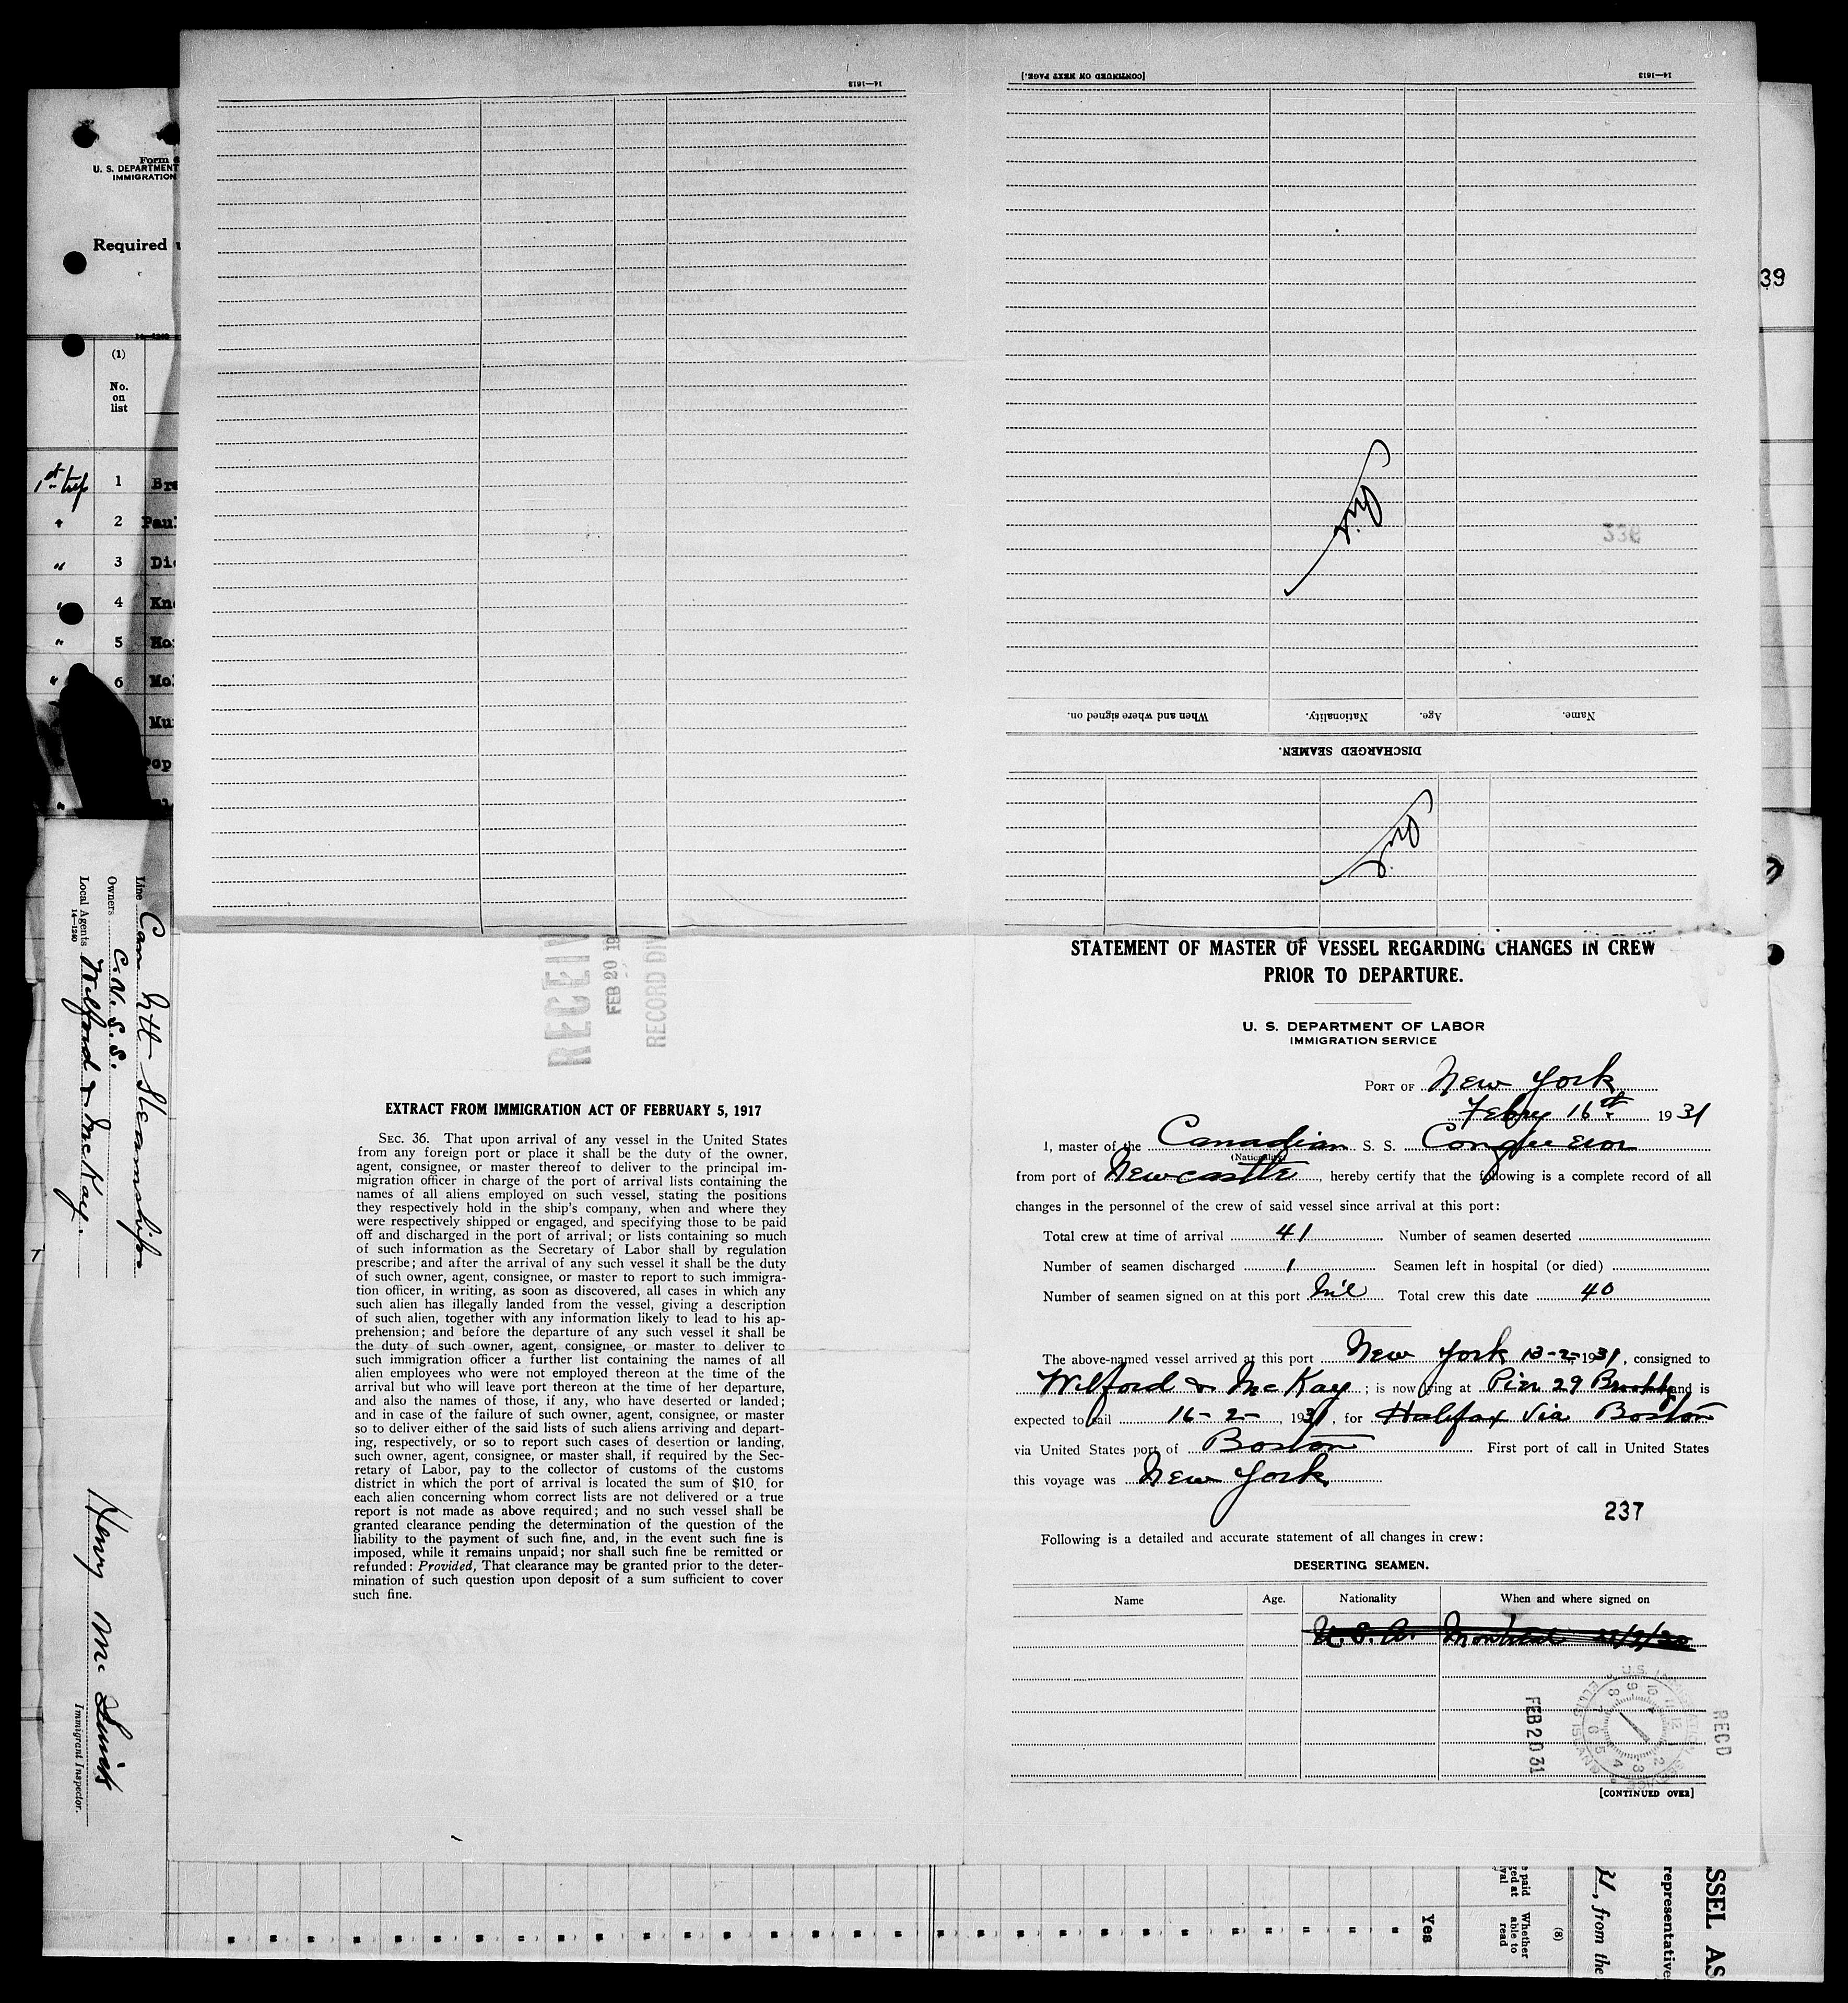 14—1613
[CONTINUED ON NEXT PAGE.]
14—1613
Form
U. S. DEPARTMENT
IMMIGRATION
Required
39
14—1240
(1)
No.
on
list
1st trip 1 Bre
" 2 Paul
" 3 Die
" 4 Kno
" 5 Ho
" 6 Mol
Mu
op
336
Name.
Age.
Nationality.
When and where signed on.
DISCHARGED SEAMEN.
Line Can Ntl Steamships
Owners C. N. S. S.
Local Agents Wilford & McKay.
14—1240
Henry M.
Immigrant Inspector.
RECEIV
FEB 20 19
RECORD DIV
EXTRACT FROM IMMIGRATION ACT OF FEBRUARY 5, 1917
SEC. 36. That upon arrival of any vessel in the United States
from any foreign port or place it shall be the duty of the owner,
agent, consignee, or master thereof to deliver to the principal im-
migration officer in charge of the port of arrival lists containing the
names of all aliens employed on such vessel, stating the positions
they respectively hold in the ship's company, when and where they
were respectively shipped or engaged, and specifying those to be paid
off and discharged in the port of arrival; or lists containing so much
of such information as the Secretary of Labor shall by regulation
prescribe; and after the arrival of any such vessel it shall be the duty
of such owner, agent, consignee, or master to report to such immigra-
tion officer, in writing, as soon as discovered, all cases in which any
such alien has illegally landed from the vessel, giving a description
of such alien, together with any information likely to lead to his ap-
prehension; and before the departure of any such vessel it shall be
the duty of such owner, agent, consignee, or master to deliver to
such immigration officer a further list containing the names of all
alien employees who were not employed thereon at the time of the
arrival but who will leave port thereon at the time of her departure,
and also the names of those, if any, who have deserted or landed;
and in case of the failure of such owner, agent, consignee, or master
so to deliver either of the said lists of such aliens arriving and depart-
ing, respectively, or so to report such cases of desertion or landing,
such owner, agent, consignee, or master shall, if required by the Sec-
retary of Labor, pay to the collector of customs of the customs
district in which the port of arrival is located the sum of $10 for
each alien concerning whom correct lists are not delivered or a true
report is not made as above required; and no such vessel shall be
granted clearance pending the determination of the question of the
liability to the payment of such fine, and, in the event such fine is
imposed, while it remains unpaid; nor shall such fine be remitted or
refunded: Provided, That clearance may be granted prior to the deter-
mination of such question upon deposit of a sum sufficient to cover
such fine.
STATEMENT OF MASTER OF VESSEL REGARDING CHANGES IN CREW
PRIOR TO DEPARTURE.
U. S. DEPARTMENT OF LABOR
IMMIGRATION SERVICE
PORT OF New York
Febry 16th 1931
I, master of the Canadian S. S. Conqueror
(Nationality)
from port of Newcastle, hereby certify that the following is a complete record of all
changes in the personnel of the crew of said vessel since arrival at this port:
Total crew at time of arrival 41 Number of seamen deserted
Number of seamen discharged 1 Seamen left in hospital (or died)
Number of seamen signed on at this port Nil Total crew this date 40
The above-named vessel arrived at this port New York 13-2-1931, consigned to
Wilford & McKay; is now lying at Pier 29 Brooklyn and is
expected to sail 16-2-, 1931, for Halifax via Boston
via United States port of Boston First port of call in United States
this voyage was New York
237
Following is a detailed and accurate statement of all changes in crew:
DESERTING SEAMEN.
Name Age. Nationality When and where signed on
U.S.A. Montreal
FEB 20 31
RECD
U.S. IMMIGRATION SERVICE
ELLIS ISLAND
[CONTINUED OVER]
Yes
Whether
able to
read
(8)
31, from the
representative
SSEL AS